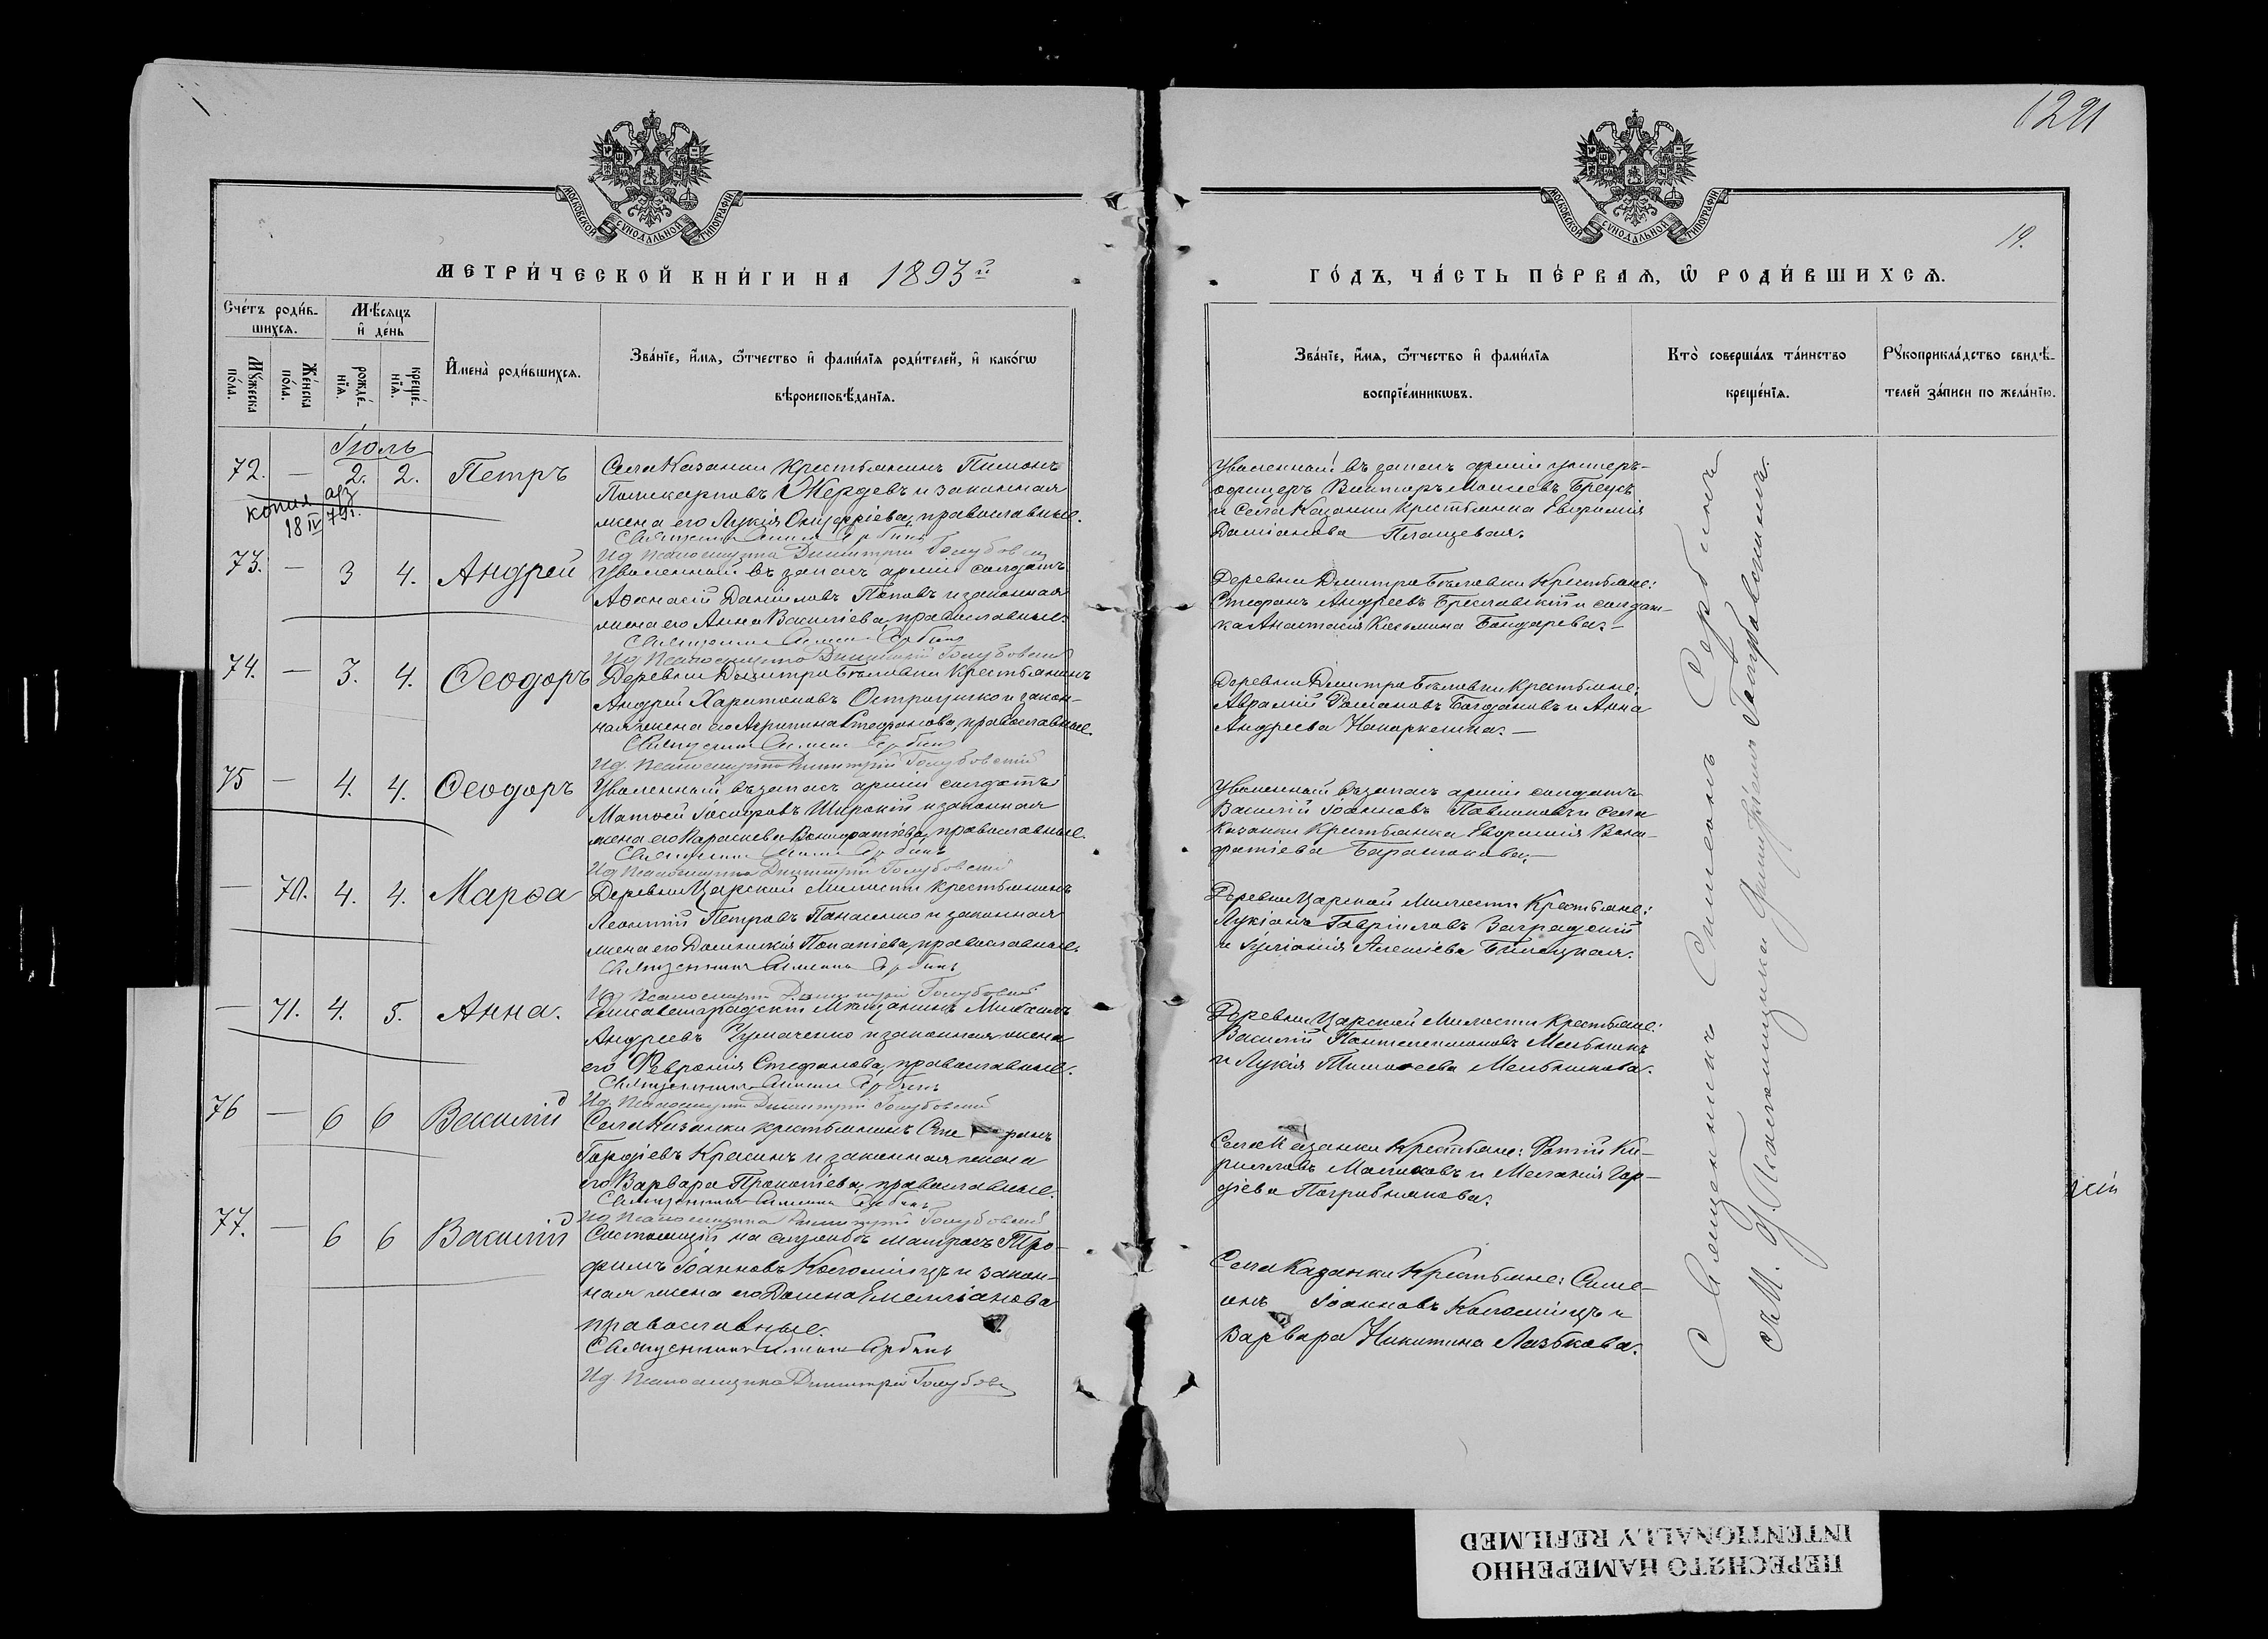 1291
19.
МОСКОВСКОЙ СѴНОДАЛЬНОЙ ТИПОГРАФІИ
МОСКОВСКОЙ СѴНОДАЛЬНОЙ ТИПОГРАФІИ
МЕТРИ́ЧЕСКОЙ КНИ́ГИ НА 1893й
ГО́ДЪ, ЧА́СТЬ ПЕ́РВАѦ, Ѽ РОДИ́ВШИХСѦ.
Сче́тъ роди́в-
шихсѧ.
Мѣ́сѧцъ
и҆ де́нь
Мꙋ́жеска
по́ла.
Же́нска
по́ла.
рожде́-
нїѧ.
креще́-
нїѧ.
И҆мена̀ роди́вшихсѧ.
Зва́нїе, и҆́мѧ, ѻ҆́тчество и҆ фами́лїѧ роди́телей, и҆ како́гѡ
вѣроисповѣ́данїѧ.
Зва́нїе, и҆́мѧ, ѻ҆́тчество и҆ фами́лїѧ
воспрїе́мникѡвъ.
Кто̀ соверша́лъ та́инство
креще́нїѧ.
Рꙋкоприкла́дство свидѣ́-
телей за́писи по жела́нїю.
Іюль
72. — 2. 2. Петръ
копия
18 IV 79г.
Села Казанки крестьянинъ Пимонъ
Поликарповъ Жердевъ и законная
жена его Лукія Онуфріева, православные.
Священникъ Симеонъ Сербинъ
Ид. Псаломщика Димитрій Голубовскій
Уволенный въ запасъ арміи унтеръ-
офицеръ Викторъ Моисеевъ Бреусъ
и Села Казанки крестьянка Евфимія
Даміанова
73. — 3 4. Андрей
Уволенный въ запасъ арміи солдатъ
Аѳанасій Даніиловъ Поповъ и законная
жена его Анна Василіева, православные.
Священникъ Симеонъ Сербинъ
Ид. Псаломщика Димитрій Голубовскій
Деревни Дмитро Бѣловки крестьяне:
Стефанъ Андреевъ Бреславскій и солдат-
ка Анастасія Козьмина Бондарева. —
74. — 3. 4. Ѳеодоръ
Деревни Дмитро Бѣловки крестьянинъ
Андрей Харитоновъ Остроушко и закон-
ная жена его Агрипина Стефанова, православные.
Священникъ Симеонъ Сербинъ
Ид. Псаломщика Димитрій Голубовскій
Деревни Дмитро Бѣловки крестьяне:
Аврамій Романовъ Богдановъ и Анна
Андреева —
75 — 4. 4. Ѳеодоръ
Уволенный въ запасъ арміи солдатъ
Матѳей Іосифовъ Широкій и законная
жена его Параскева Вонифатіева, православные.
Священникъ Симеонъ Сербинъ
Ид. Псаломщика Димитрій Голубовскій
Уволенный въ запасъ арміи солдатъ
Василій Іоанновъ и села
Казанки крестьянка Евфимія Вони-
фатіева —
— 70. 4. 4. Марѳа
Деревни Царской Милости крестьянинъ
Леонтій Петровъ Панасенко и законная
жена его Домникія Потапіева, православные.
Священникъ Симеонъ Сербинъ
Ид. Псаломщика Димитрій Голубовскій
Деревни Царской Милости крестьяне:
Лукіанъ Гавріиловъ Заградскій
и Іуліанія Алексіева Билецкая.
— 71. 4. 5. Анна.
Елисаветградскій мѣщанинъ Михаилъ
Андреевъ Чумаченко и законная жена
его Февронія Стефанова, православные.
Священникъ Симеонъ Сербинъ
Ид. Псаломщика Димитрій Голубовскій
Деревни Царской Милости крестьяне:
Василій Пантелеимоновъ Мельникъ
и Лукія Тимоѳеева Мельникова.
76 — 6 6 Василій
Села Казанки крестьянинъ Стефанъ
Гордіевъ Красинъ и законная жена
его Варвара Прокопіева, православные.
Священникъ Симеонъ Сербинъ
Ид. Псаломщика Димитрій Голубовскій
Села Казанки крестьяне: Фотій Ки-
рилловъ Малиховъ и Меланія Гор-
діева
77. — 6 6 Василій
Состоящій на службѣ матросъ Тро-
фимъ Іоанновъ Коломіецъ и закон-
ная жена его Домна Емельянова
православные.
Священникъ Симеонъ Сербинъ
Ид. Псаломщика Димитрій Голубовскій
Села Казанки крестьяне: Симе-
онъ Іоанновъ Коломіецъ и
Варвара Никитина Лазькова.
Священникъ Симеонъ Сербинъ
и. д. Псаломщика Димитрій Голубовскій.
ПЕРЕСНЯТО НАМЕРЕННО
INTENTIONALLY REFILMED